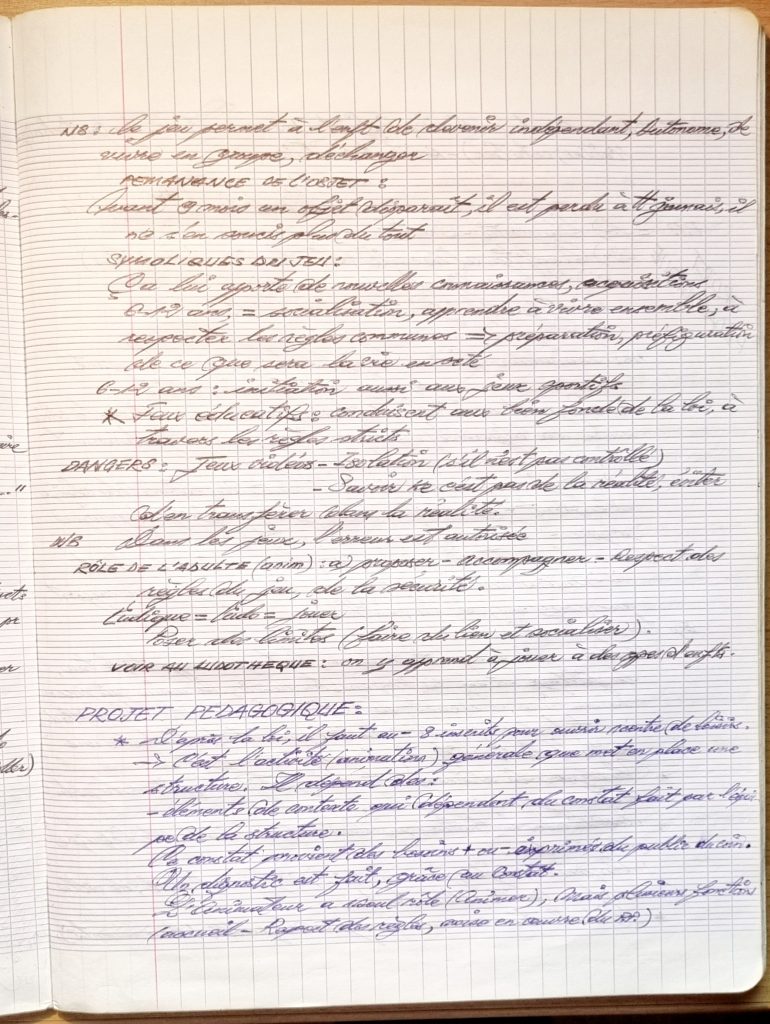 NB: Le jeu permet à l'enft de devenir indépendant, autonome, de
vivre en groupe, d'échanger
PEMANANCE DE L'OBJET :
Avant 9 mois un objet disparaît, il est perdu à tt jamais, il
ne s'en soucis plus du tout
SYMOLIQUES DU JEU :
Ça lui apporte de nouvelles connaissances, acquisitions
6-12 ans, = socialisation, apprendre à vivre ensemble, à
respecter les règles communes => préparation, préfiguration
de ce que sera la vie en sté
6-12 ans : initiation aussi aux jeux sportifs
* Jeux éducatifs : conduisent aux bien fondé de la loi, à
travers les règles stricts
DANGERS : Jeux vidéos - Isolation (s'il n'est pas contrôlé)
- Savoir ke c'est pas de la réalité, éviter
d'en transférer dans la réalité.
N/B Dans les jeux, l'erreur est autorisée
RÔLE DE L'ADULTE (anim) : a) proposer - accompagner - Respect des
règles du jeu, de la sécurité.
Ludique = ludo = jouer
Poser des limites (faire du lien et socialiser).
VOIR AU LUDOTHEQUE : on y apprend à jouer à des gpes d'enfts.
PROJET PEDAGOGIQUE :
* D'après la loi, il faut au- 8 inscrits pour ouvrir 1 centre de loisirs.
-> C'est l'activité (animation) générale que met en place une
structure. Il dépend des :
- éléments de contexte qui dépendent du constat fait par l'équi
pe de la structure.
Ce constat provient des besoins + ou - exprimés du public
Un diagnostic est fait, grâce au constat.
L'animateur a 1 seul rôle (Animer), mais plusieurs fonctions
(accueil - Rappel des règles, mise en oeuvre du PP.)